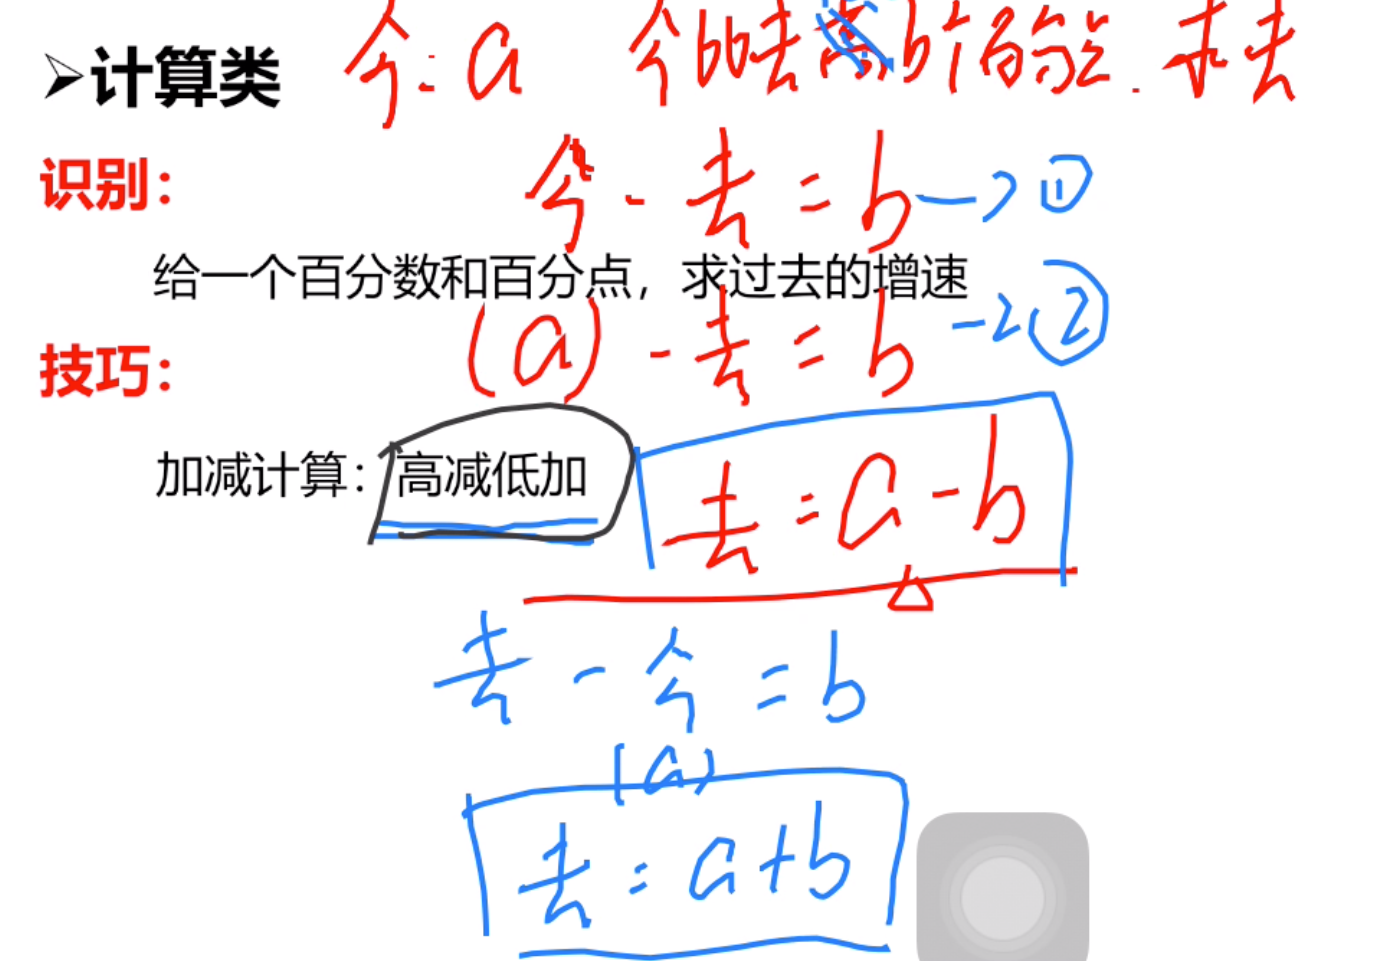 ➢计算类 今:a 今比去高b个百分点. 求去
识别：
今-去=b→①
给一个百分数和百分点，求过去的增速
(a)-去=b→②
技巧：
加减计算：高减低加
去=a-b
去-今=b
(a)
去=a+b